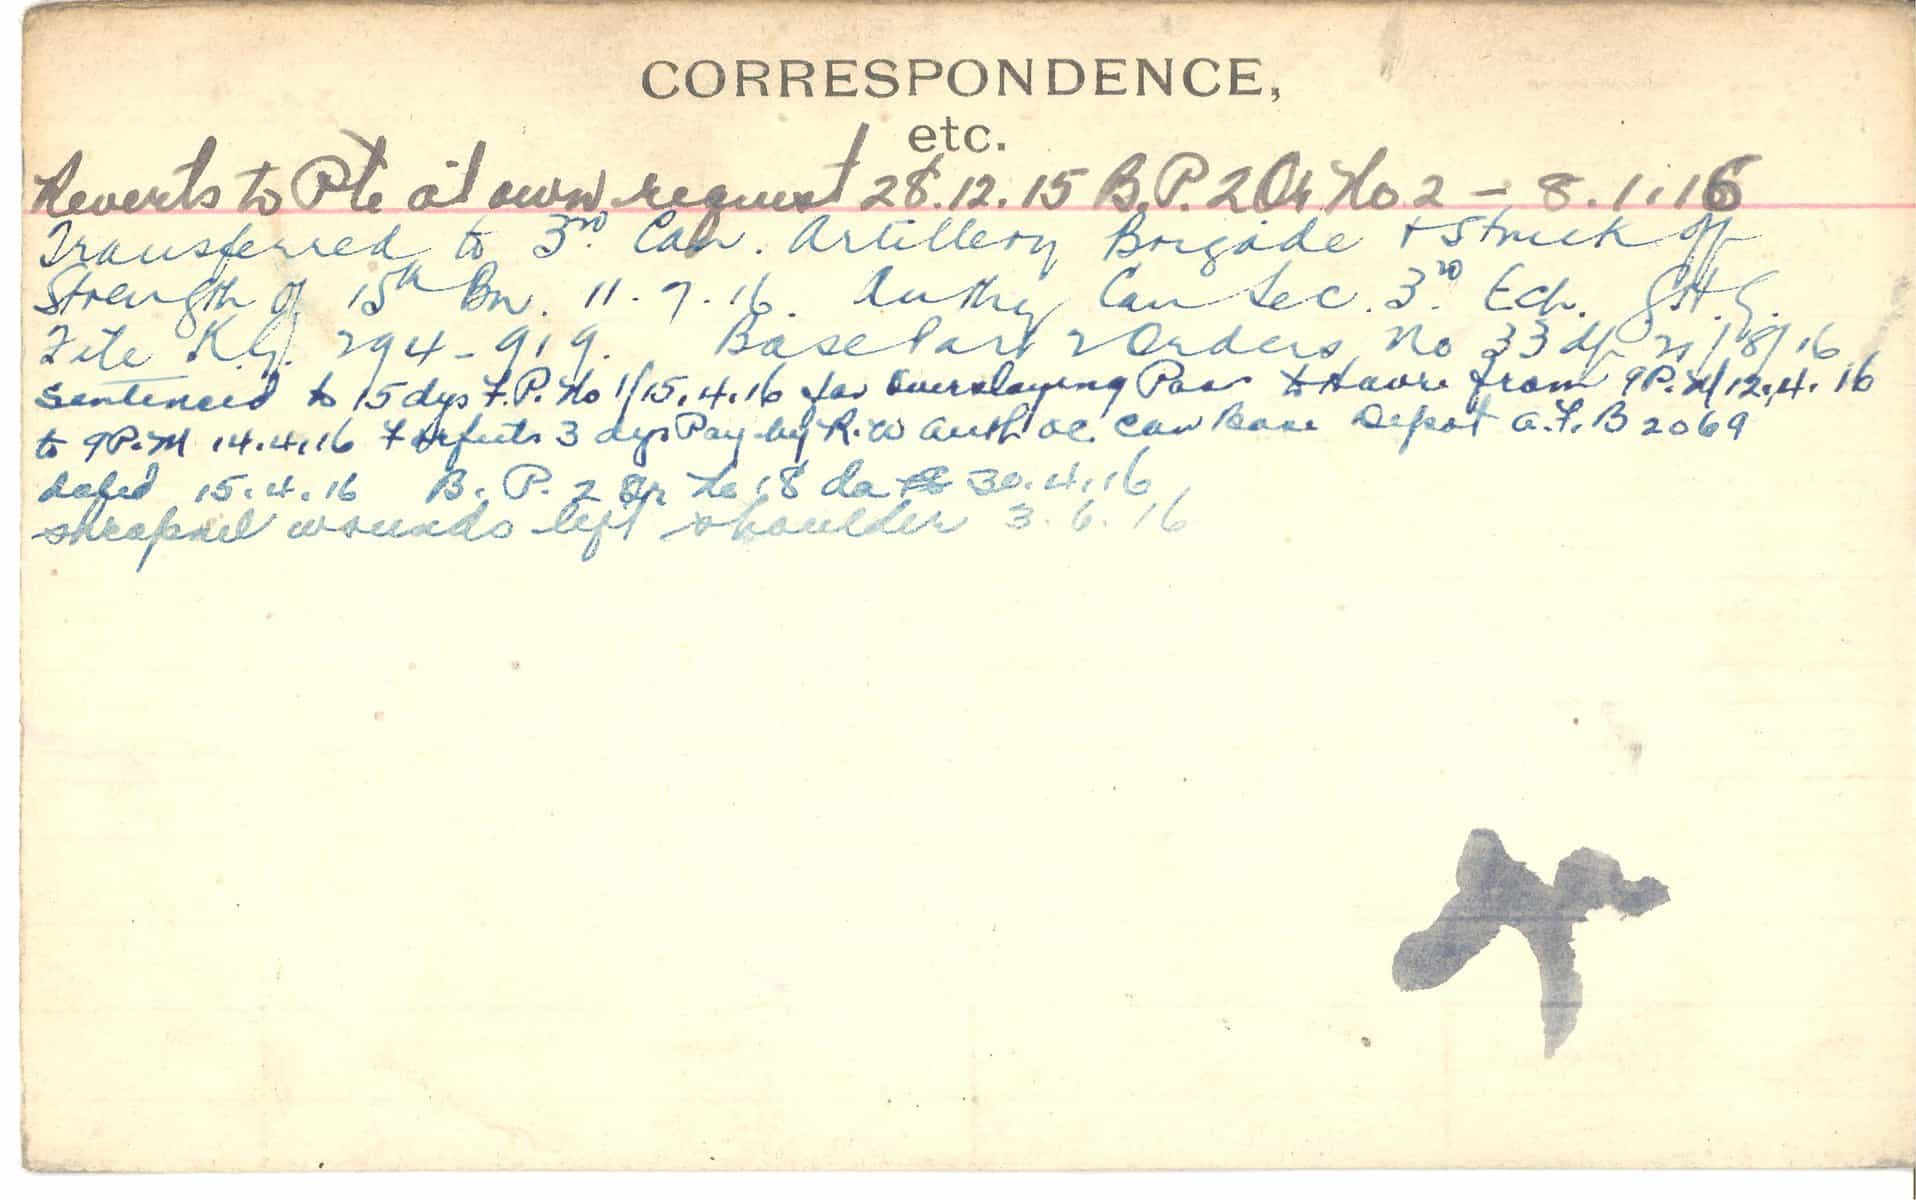 CORRESPONDENCE,
etc.
Reverts to Pte at own request 28.12.15 B.P. 2 Or No 2 - 8.1.16
Transferred to 3rd Can. Artillery Brigade + Struck off
Strength of 15th Bn. 11.7.16. Authy Can Sec. 3rd Ech. G.H.Q.
File K.G. 294-919. Base Part 2 Orders No 33 d/ 21/8/16
Sentenced to 15 dys F.P. No 1/15.4.16 for Overstaying Pass to Havre from 9 P.M/12.4.16
to 9 P.M 14.4.16 Forfeits 3 dys Pay by R.W Auth O.C. Can Base Depot A.F.B 2069
dated 15.4.16 B.P. 2 Or No 18 da 30.4.16
shrapnel wounds left shoulder 3.6.16